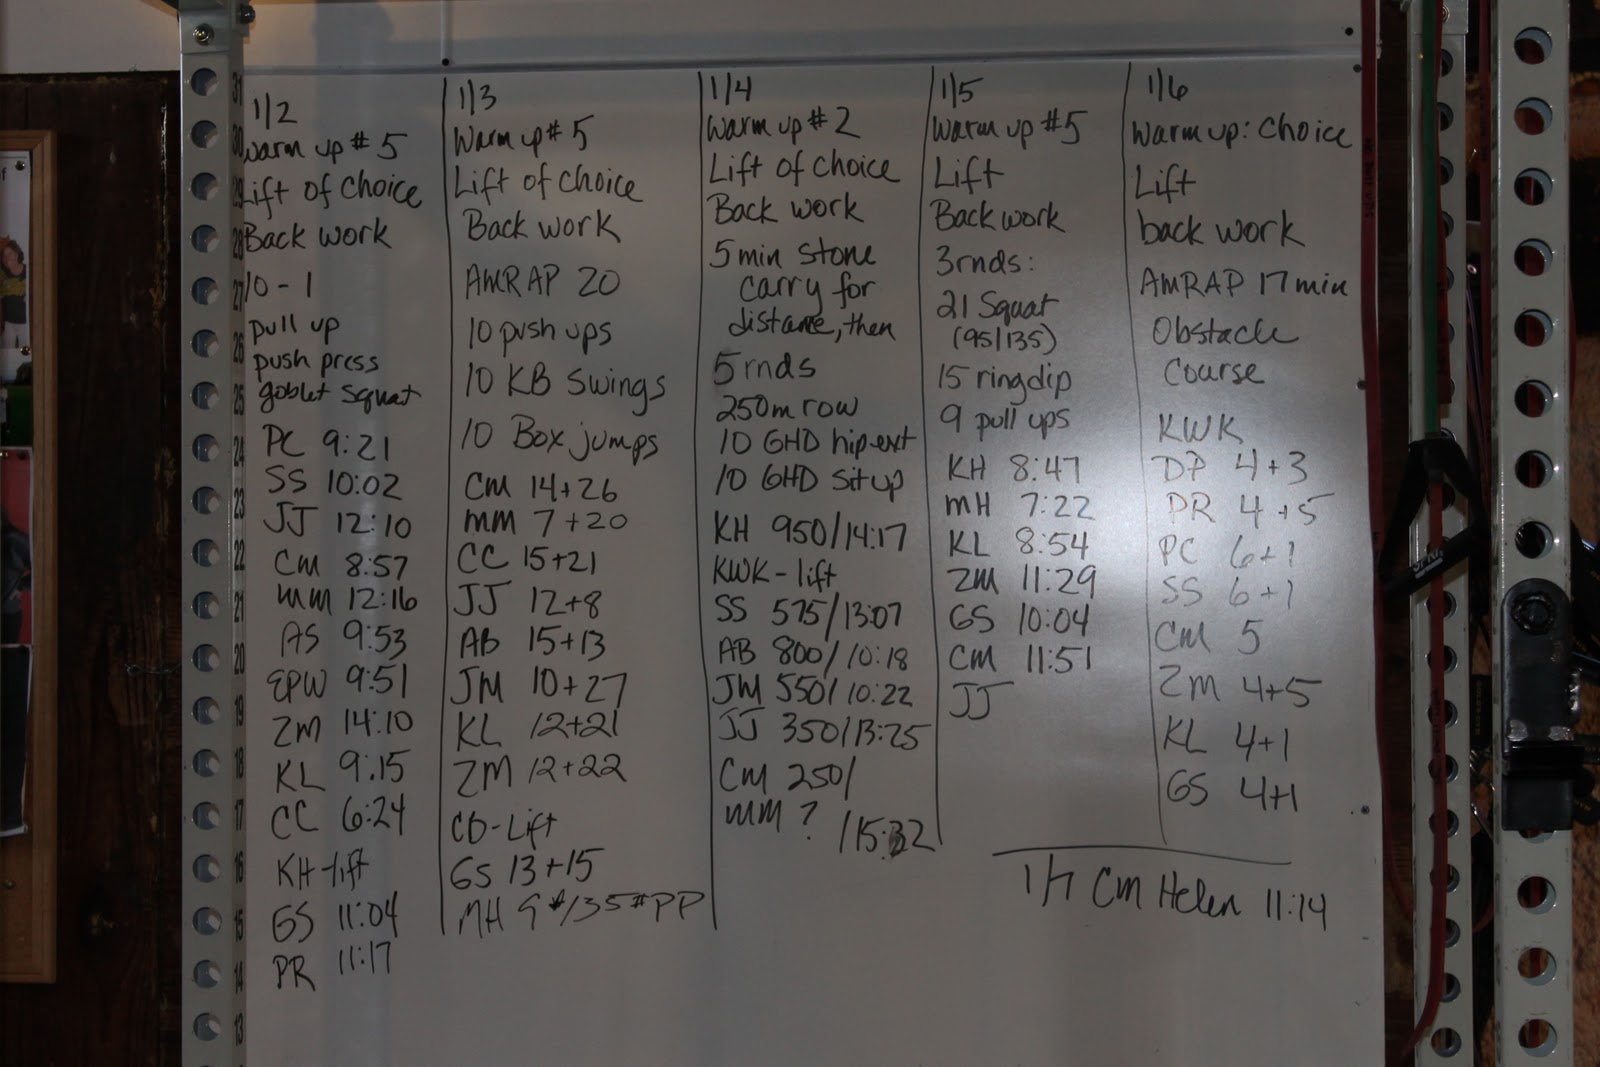 1/2
Warm up # 5
Lift of Choice
Back work
10 - 1
pull up
push press
goblet squat
PC 9:21
SS 10:02
JJ 12:10
CM 8:57
MM 12:16
AS 9:53
EPW 9:51
ZM 14:10
KL 9:15
CC 6:24
KH - lift
GS 11:04
PR 11:17
1/3
Warm up # 5
Lift of Choice
Back work
AMRAP 20
10 push ups
10 KB Swings
10 Box jumps
CM 14+26
MM 7+20
CC 15+21
JJ 12+8
AB 15+13
JM 10+27
KL 12+21
ZM 12+22
CD-Lift
GS 13+15
MH 135# PP
1/4
Warm up # 2
Lift of Choice
Back work
5 min stone
carry for
distance, then
5 rnds
250m row
10 GHD hip ext
10 GHD sit up
KH 950/14:17
KWK - lift
SS 575/13:07
AB 800/10:18
JM 550/10:22
JJ 350/13:25
CM 250/
MM ? /15:32
1/5
Warm up #5
Lift
Back work
3rnds:
21 Squat
(95/135)
15 ring dip
9 pull ups
KH 8:47
MH 7:22
KL 8:54
ZM 11:29
GS 10:04
CM 11:51
JJ
1/6
Warm up: Choice
Lift
back work
AMRAP 17 min
Obstacle
Course
KWK
DP 4+3
PR 4+5
PC 6+1
SS 6+1
CM 5
ZM 4+5
KL 4+1
GS 4+1
1/7 CM Helen 11:14
31
30
29
28
27
26
25
24
23
22
21
20
19
18
17
16
15
14
13